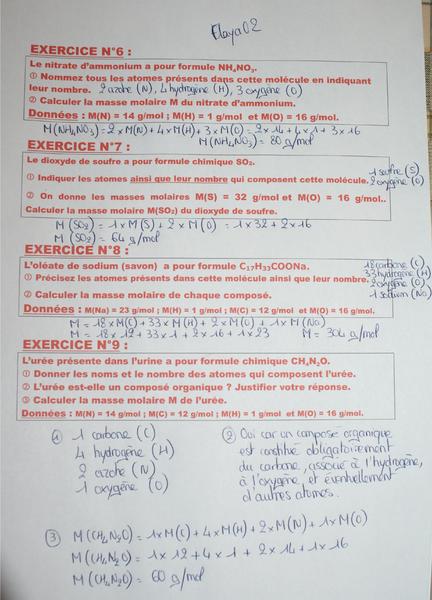 Elaya02
EXERCICE N°6 :
Le nitrate d'ammonium a pour formule NH₄NO₃.
① Nommez tous les atomes présents dans cette molécule en indiquant
leur nombre. 2 azote (N), 4 hydrogène (H), 3 oxygène (O)
② Calculer la masse molaire M du nitrate d'ammonium.
Données : M(N) = 14 g/mol ; M(H) = 1 g/mol et M(O) = 16 g/mol.
M(NH₄NO₃) = 2 x M(N) + 4 x M(H) + 3 x M(O) = 2 x 14 + 4 x 1 + 3 x 16
M(NH₄NO₃) = 80 g/mol
EXERCICE N°7 :
Le dioxyde de soufre a pour formule chimique SO₂.
① Indiquer les atomes ainsi que leur nombre qui composent cette molécule.
1 soufre (S)
2 oxygène (O)
② On donne les masses molaires M(S) = 32 g/mol et M(O) = 16 g/mol..
Calculer la masse molaire M(SO₂) du dioxyde de soufre.
M (SO₂) = 1 x M(S) + 2 x M(O) = 1 x 32 + 2 x 16
M (SO₂) = 64 g/mol
EXERCICE N°8 :
L'oléate de sodium (savon) a pour formule C₁₇H₃₃COONa.
① Précisez les atomes présents dans cette molécule ainsi que leur nombre.
18 carbone (C)
33 hydrogène (H)
2 oxygène (O)
1 sodium (Na)
② Calculer la masse molaire de chaque composé.
Données : M(Na) = 23 g/mol ; M(H) = 1 g/mol ; M(C) = 12 g/mol et M(O) = 16 g/mol.
M = 18 x M(C) + 33 x M(H) + 2 x M(O) + 1 x M(Na)
M = 18 x 12 + 33 x 1 + 2 x 16 + 1 x 23 M = 304 g/mol
EXERCICE N°9 :
L'urée présente dans l'urine a pour formule chimique CH₄N₂O.
① Donner les noms et le nombre des atomes qui composent l'urée.
② L'urée est-elle un composé organique ? Justifier votre réponse.
③ Calculer la masse molaire M de l'urée.
Données : M(N) = 14 g/mol ; M(C) = 12 g/mol ; M(H) = 1 g/mol et M(O) = 16 g/mol.
① 1 carbone (C)
4 hydrogène (H)
2 azote (N)
1 oxygène (O)
② Oui car un composé organique
est constitué obligatoirement
du carbone, associé à l'hydrogène,
à l'oxygène, et éventuellement
d'autres atomes.
③ M(CH₄N₂O) = 1 x M(C) + 4 x M(H) + 2 x M(N) + 1 x M(O)
M(CH₄N₂O) = 1 x 12 + 4 x 1 + 2 x 14 + 1 x 16
M(CH₄N₂O) = 60 g/mol